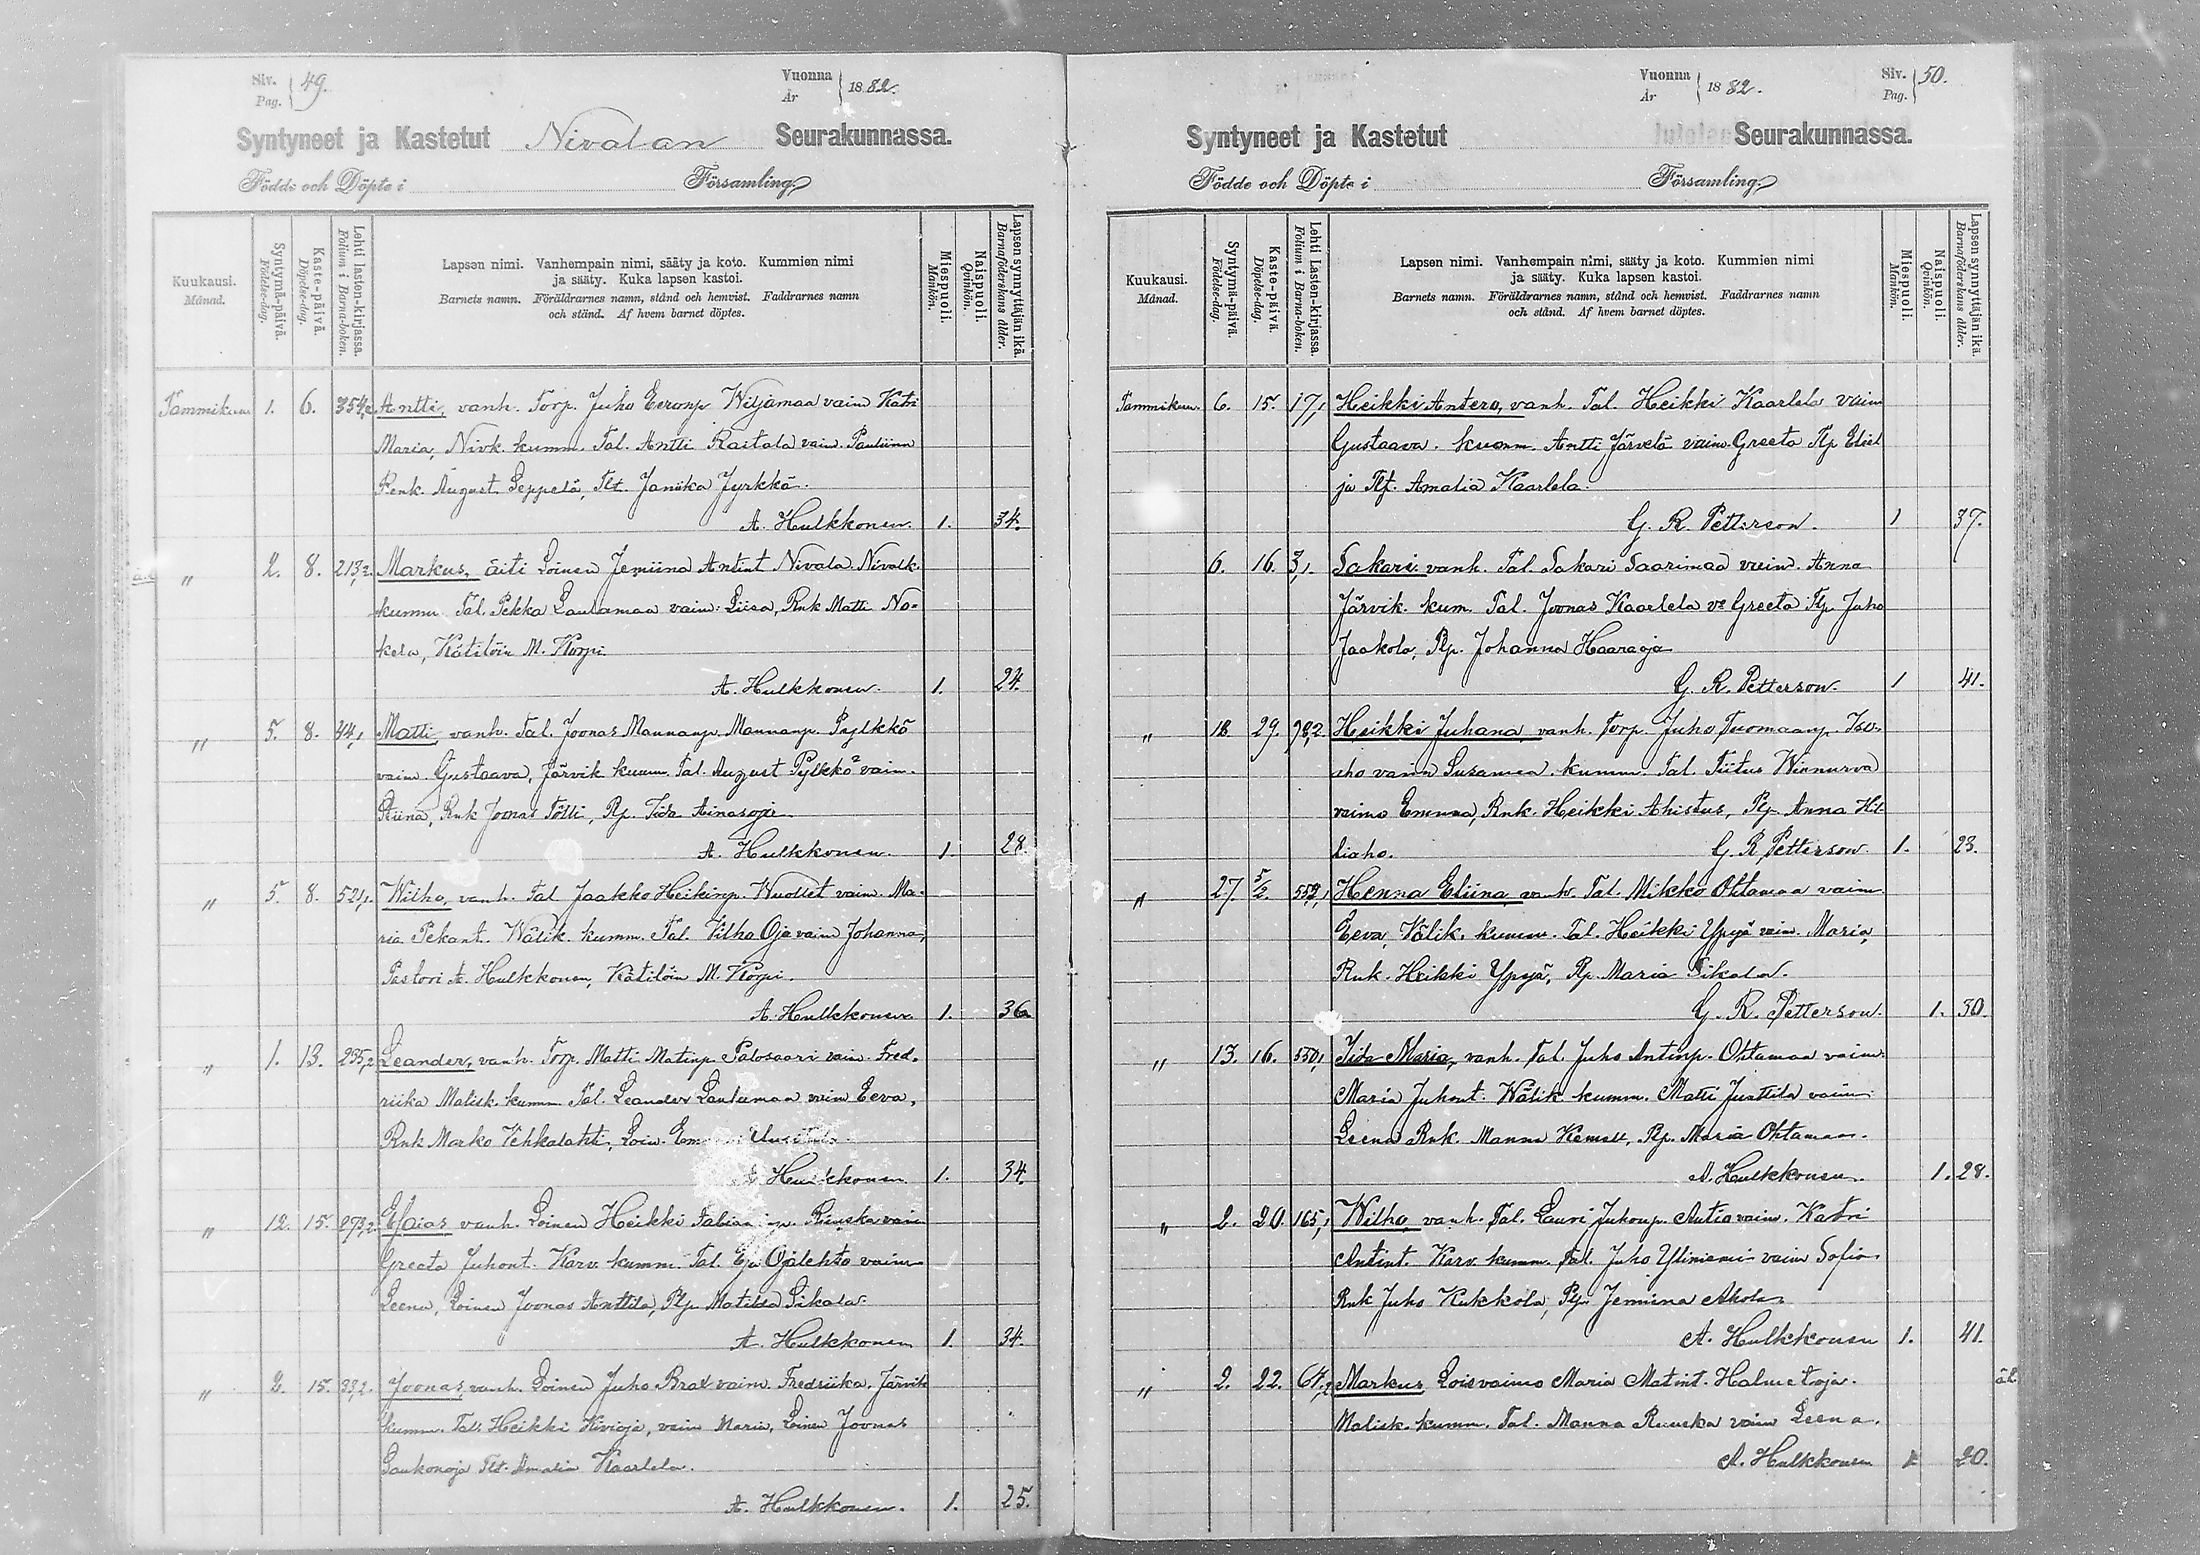 Siv. Pag. 49.
Vuonna År 1882.
Syntyneet ja Kastetut Nivalan Seurakunnassa.
Födde och Döpte i Församling.
Kuukausi. Månad.
Syntymä-päivä. Födelse-dag.
Kaste-päivä. Döpelse-dag.
Lehti lasten-kirjassa. Folium i Barna-boken.
Lapsen nimi. Vanhempain nimi, sääty ja koto. Kummien nimi
ja sääty. Kuka lapsen kastoi.
Barnets namn. Föräldrarnes namn, stånd och hemvist. Faddrarnes namn
och stånd. Af hvem barnet döptes.
Miespuoli. Mankön.
Naispuoli. Qvinkön.
Lapsen synnyttäjän ikä. Barnaföderskans ålder.
Tammikuu 1. 6. 354,2 Antti, vanh. Torp. Juho Eeronp. Wiljamaa vaim Katri
Maria, Nivk. kumm. Tal. Antti Raitala vaim. Pauliina
Renk. August Leppelä, Tlt. Janika Jyrkkä.
A. Hulkkonen. 1. 34.
" 2. 8. 213,2 Markus, äiti Loinen Jemiina Antint Nivala Nivalk.
kumm Tal. Pekka Lautamaa vaim. Liisa, Rnk Matti No-
kela, Kätilöin M. Korpi.
A. Hulkkonen. 1. 24.
" 5. 8. 44,1 Matti, vanh. Tal. Joonas Mannanp. Mannanp. Pylkkö
vaim. Gustaava, Järvik kumm. Tal. August Pylkkö vaim.
Stiina, Rnk Joonas Tölli, Rp. Iida Ainasoja
A. Hulkkonen. 1. 28.
" 5. 8. 521,1 Wilho, vanh. Tal Jaakko Heikinp. Wuollet vaim. Ma-
ria Pekant. Wälik. kumm. Tal. Vilho Oja vaim Johanna,
Pastori A. Hulkkonen, Kätilöin M. Korpi.
A. Hulkkonen 1. 36.
" 1. 13. 235,2 Leander, vanh. Torp. Matti Matinp Palosaari vaim. Fred-
riika Malisk. kumm. Tal. Leander Lautamaa vaim Eeva,
Rnk Marko Vehkalahti, Loin.
A. Hulkkonen 1. 34.
" 12. 15. 273,2 Esaias vanh. Loinen Heikki Ruuska vaim
Greeta Juhont. Karv. kumm. Tal. Ojalehto vaim
Leena, Loinen Joonas Anttila, Plp. Matilda Sikala.
A. Hulkkonen 1. 34.
" 2. 15. 33,2 Joonas, vanh. Loinen Juho Brax vaim. Fredriika. Järvik
kumm. Tal. Heikki Kivioja, vaim Maria, Loinen Joonas
Laukonoja Tlt. Amalia Kaarlela.
A. Hulkkonen. 1. 25.
Vuonna År 1882.
Siv. Pag. 50.
Syntyneet ja Kastetut Seurakunnassa.
Födde och Döpte i Församling.
Kuukausi. Månad.
Syntymä-päivä. Födelse-dag.
Kaste-päivä. Döpelse-dag.
Lehti Lasten-kirjassa. Folium i Barna-boken.
Lapsen nimi. Vanhempain nimi, sääty ja koto. Kummien nimi
ja sääty. Kuka lapsen kastoi.
Barnets namn. Föräldrarnes namn, stånd och hemvist. Faddrarnes namn
och stånd. Af hvem barnet döptes.
Miespuoli. Mankön.
Naispuoli. Qvinkön.
Lapsen synnyttäjän ikä. Barnaföderskans ålder.
Tammikuu. 6. 15. 17,1 Heikki Antero, vanh. Tal. Heikki Kaarlela vaim
Gustaava. kumm. Antti Järvelä vaim. Greeta Tlp Eliel
ja Tlt. Amalia Kaarlela.
G. R. Petterson. 1 37.
6. 16. 3,1 Sakari vanh. Tal. Sakari Saarimaa vaim. Anna
Järvik. kum. Tal. Joonas Kaarlela vo Greeta Tlp. Juho
Jaakola, Plp. Johanna Haaraoja
G. R. Petterson. 1 41.
" 18 29. 78,2 Heikki Juhana, vanh. Torp. Juho Tuomaanp. Iso-
aho vaim Susanna. kumm. Tal. Tiitus Winnurva
vaimo Emma, Rnk. Heikki Ahistus, Plp. Anna Hil-
liaho. G. R. Petterson 1. 23.
" 27. 5/2. 552,1 Henna Eliina, vanh. Tal. Mikko Ohtamaa vaim
Eeva, Välik. kumm. Tal. Heikki Ypyä vaim. Maria,
Rnk. Heikki Ypyä, Rp. Maria Sikala.
G. R. Petterson. 1. 30.
" 13. 16. 550,1 Iida Maria, vanh. Tal. Juho Antinp. Ohtamaa vaim.
Maria Juhont. Wälik kumm. Matti Junttila vaim
Leena Rnk. Manna Kemell, Rp. Maria Ohtamaa.
A. Hulkkonen. 1. 28.
" 2. 20. 165,1 Wilho, vanh. Tal. Lauri Juhonp. Autio vaim. Katri
Antint. Karv. kumm. Tal. Juho Yliniemi vaim Sofia
Rnk Juho Kukkola, Plp. Jemiina Ahola.
A. Hulkkonen 1. 41.
" 2. 22. 64,2 Markus Loisvaimo Maria Matint. Halmetoja.
Malisk. kumm. Tal. Manna Ruuska vaim Leena.
A. Hulkkonen 1. 20.